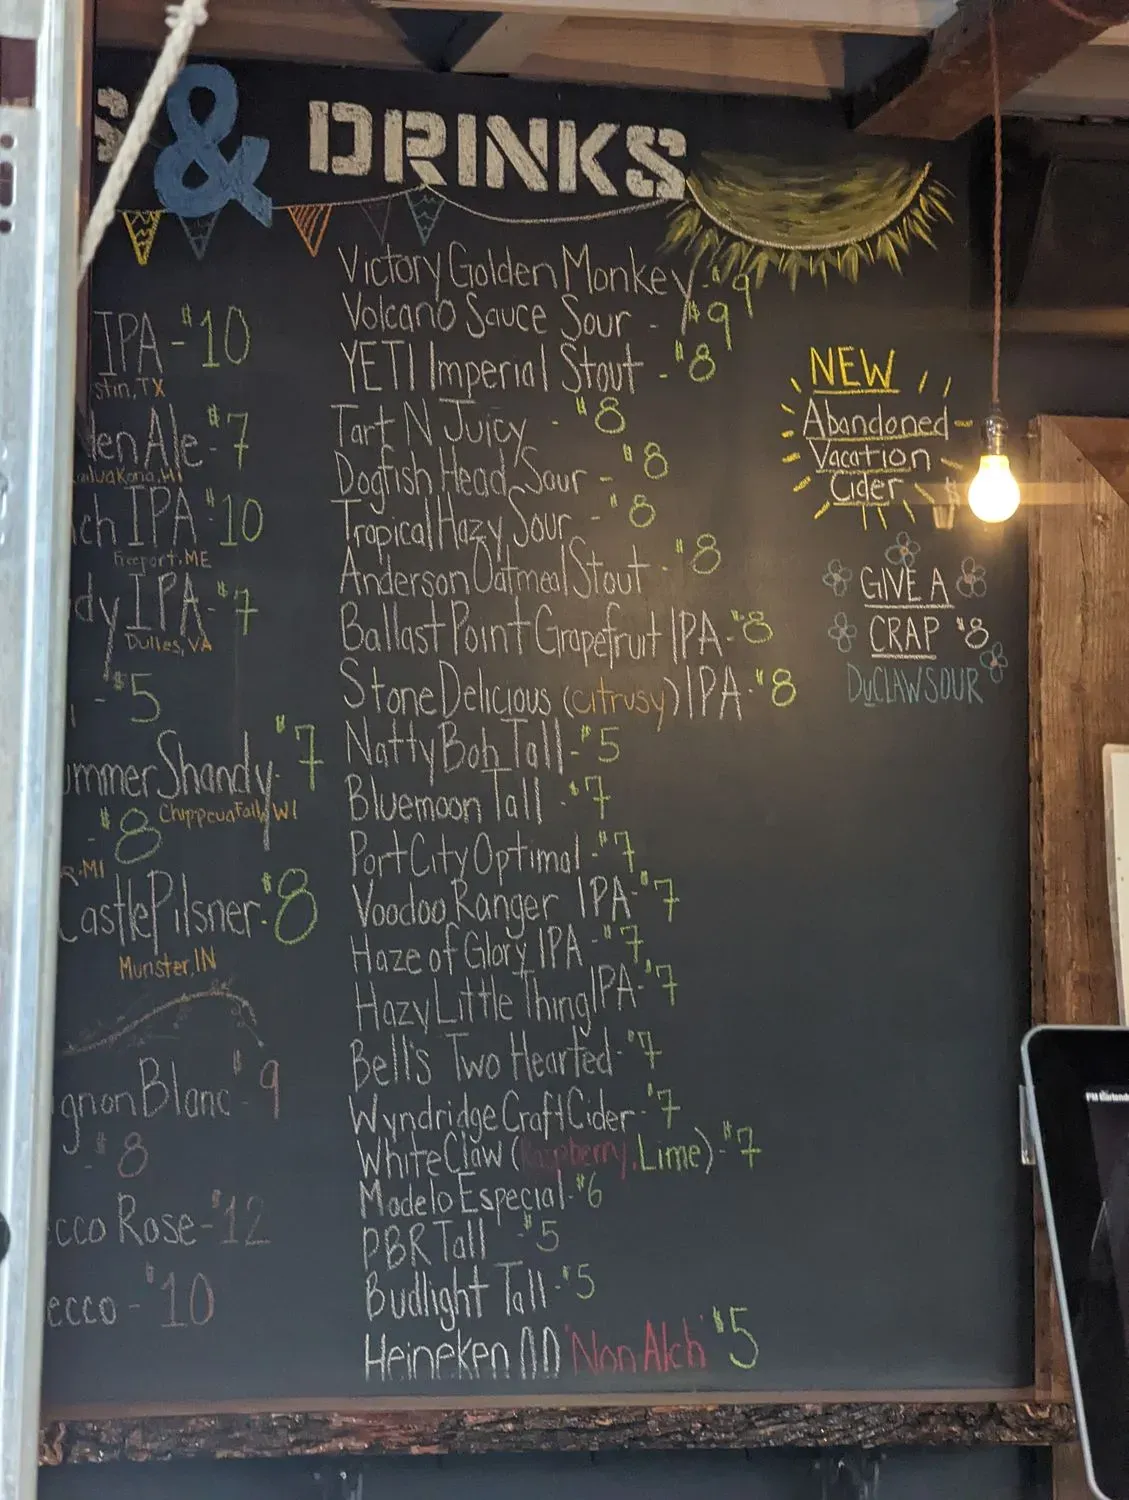 & DRINKS
IPA - $10
stin, TX
len Ale - $7
Kailua Kona, HI
ch IPA - $10
Freeport, ME
dy IPA - $7
Dulles, VA
- $5
ummer Shandy - $7
Chippewa Falls, WI
- $8
R, MI
Castle Pilsner - $8
Munster, IN
gnon Blanc - $9
- $8
cco Rose - $12
ecco - $10
Victory Golden Monkey - $9
Volcano Sauce Sour - $9
YETI Imperial Stout - $8
Tart N Juicy - $8
Dogfish Head Sour - $8
Tropical Hazy Sour - $8
Anderson Oatmeal Stout - $8
Ballast Point Grapefruit IPA - $8
Stone Delicious (citrusy) IPA - $8
Natty Boh Tall - $5
Bluemoon Tall - $7
Port City Optimal - $7
Voodoo Ranger IPA - $7
Haze of Glory IPA - $7
Hazy Little Thing IPA - $7
Bell's Two Hearted - $7
Wyndridge Craft Cider - $7
White Claw (Raspberry, Lime) - $7
Modelo Especial - $6
PBR Tall - $5
Budlight Tall - $5
Heineken 00 "Non Alch" $5
NEW
Abandoned
Vacation
Cider
GIVE A
CRAP $8
DuCLAW SOUR